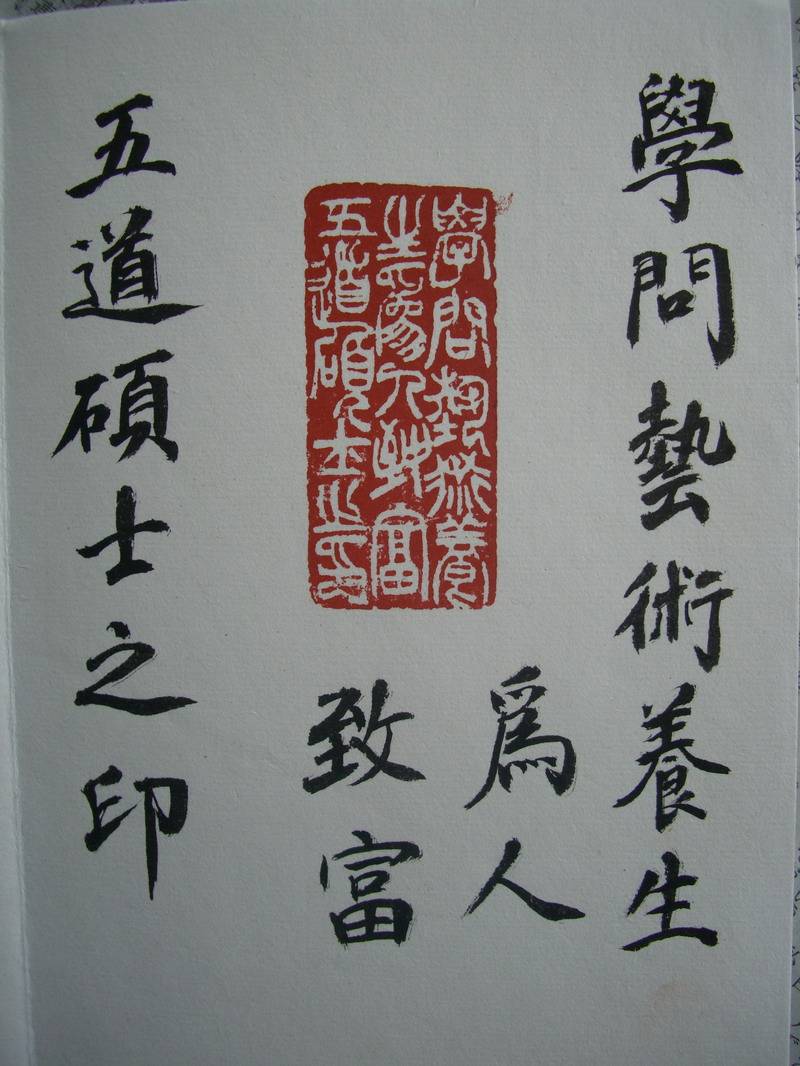 學問藝術養生
爲人
致富
五道碩士之印
學問藝術養
生爲人致富
五道碩士之印